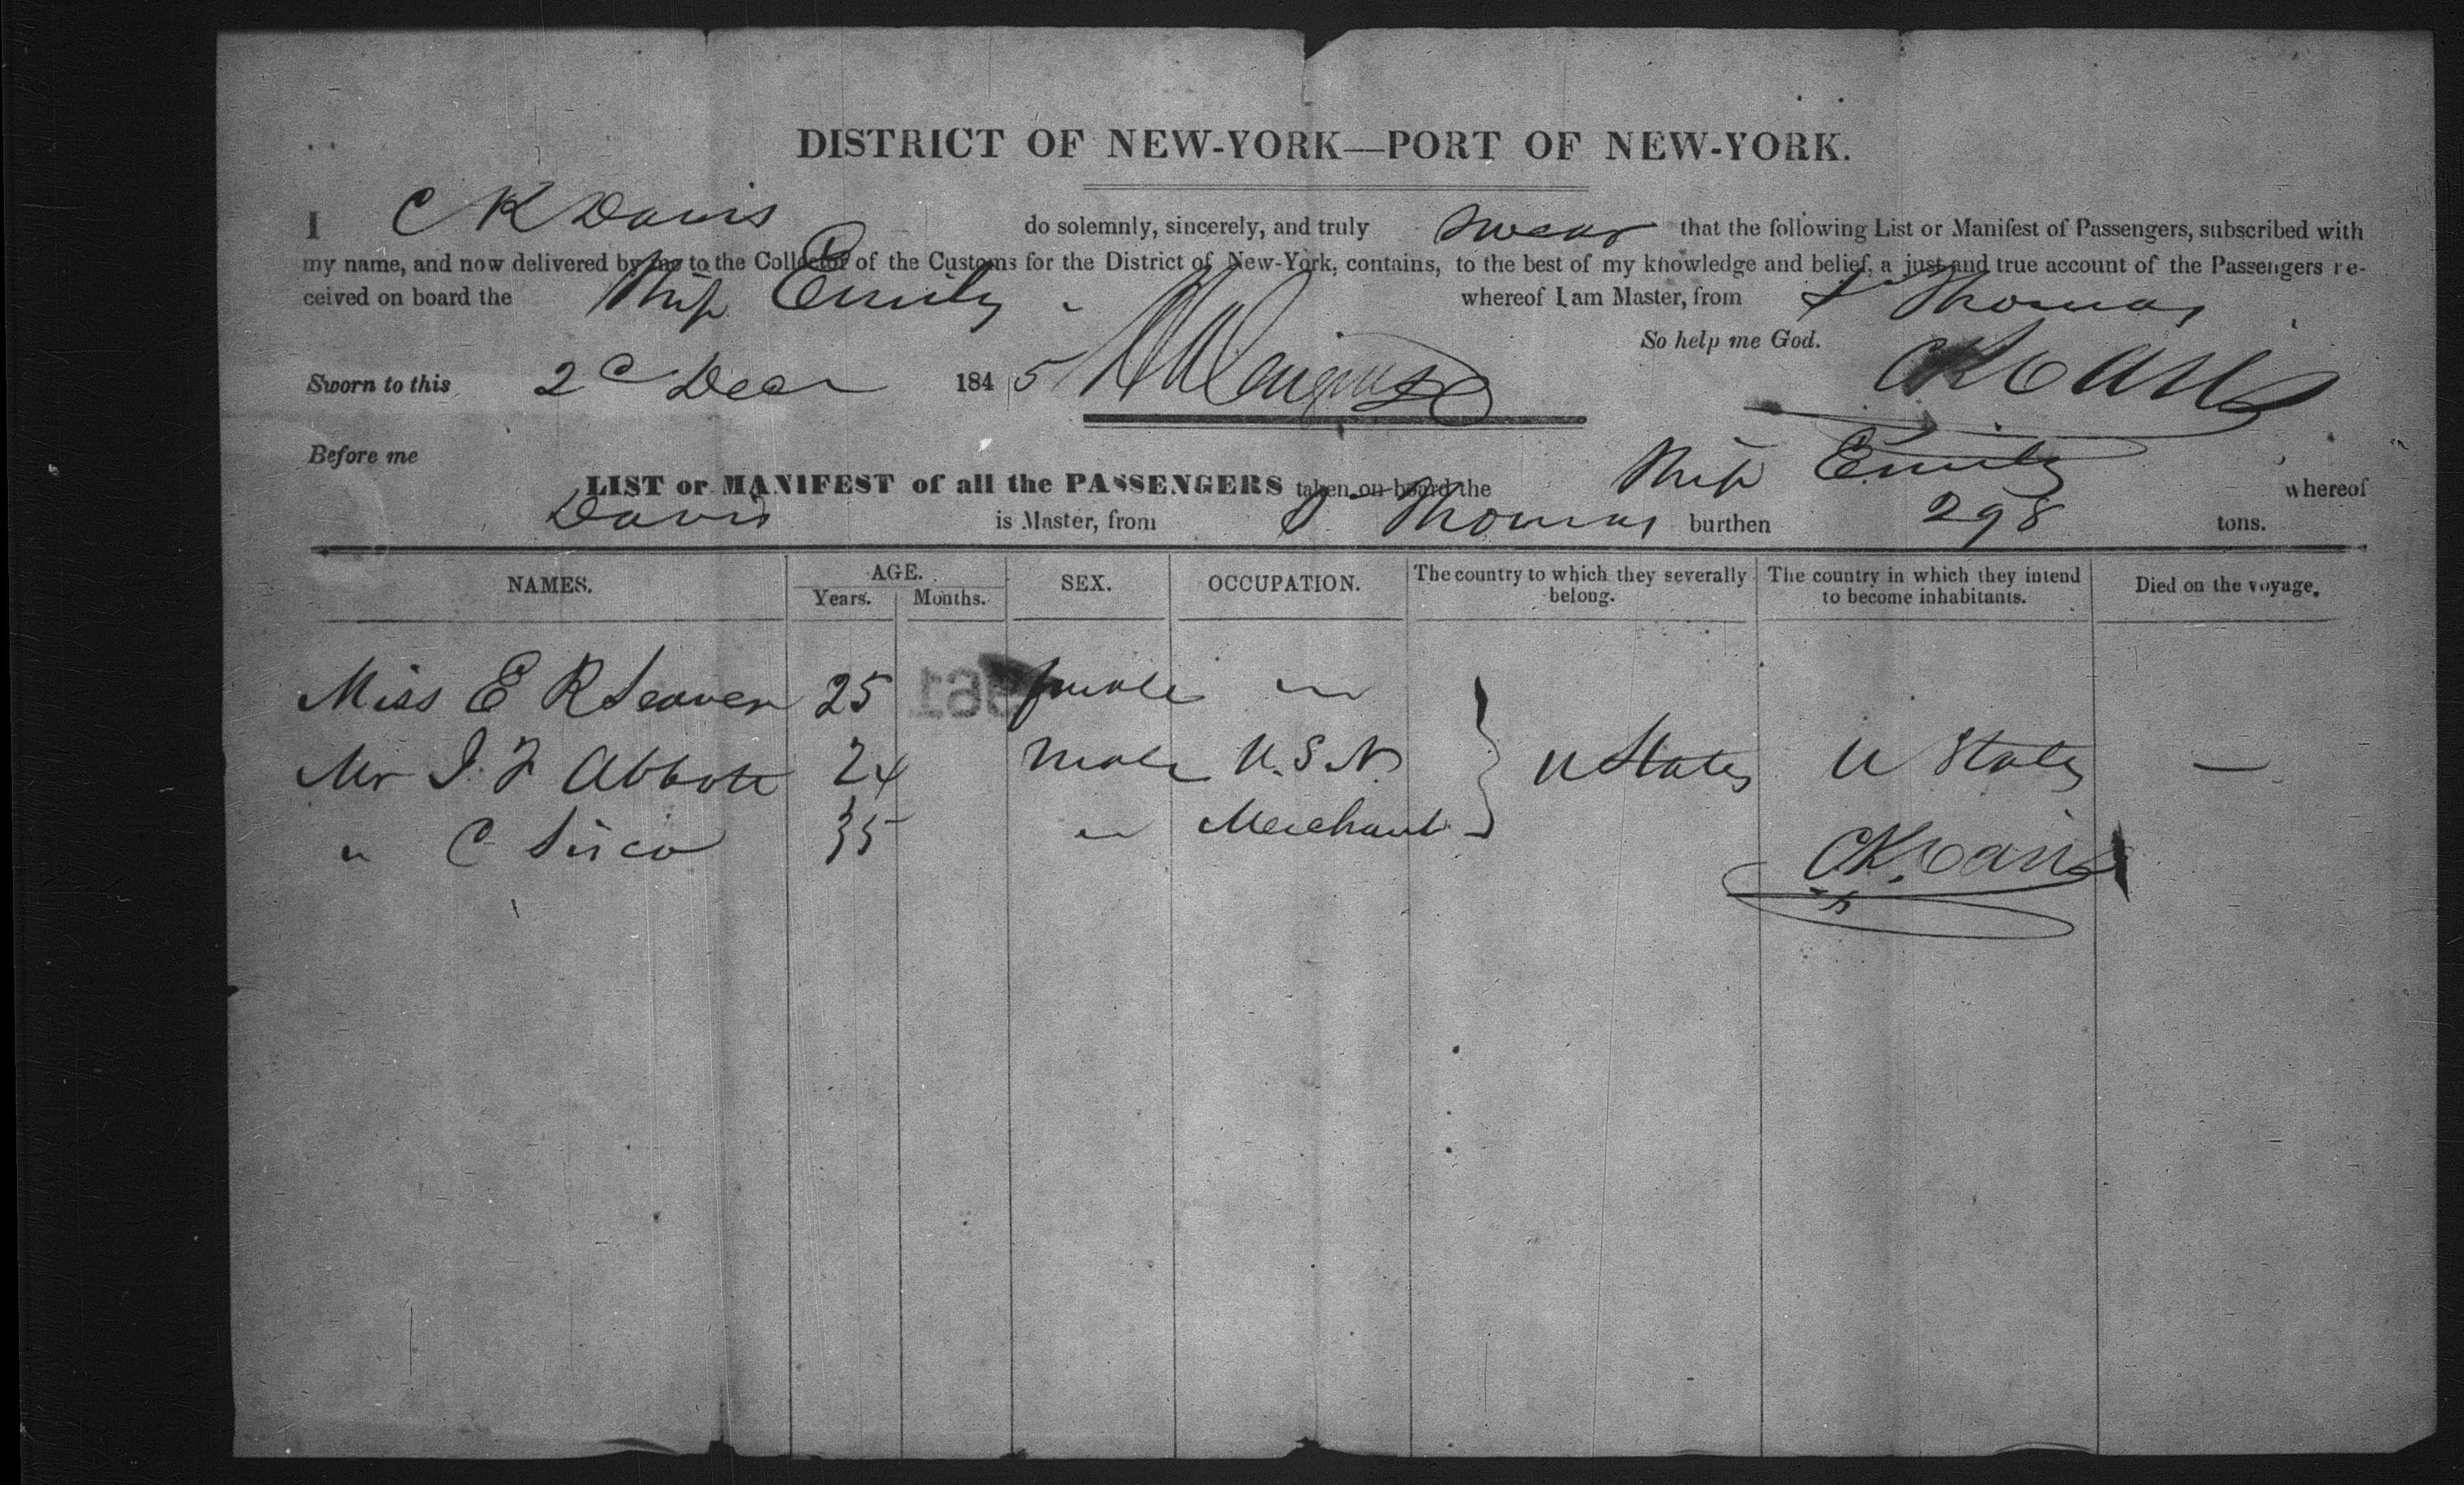 DISTRICT OF NEW-YORK—PORT OF NEW-YORK.
I C K Davis do solemnly, sincerely, and truly swear that the following List or Manifest of Passengers, subscribed with
my name, and now delivered by me to the Collector of the Customs for the District of New-York, contains, to the best of my knowledge and belief, a just and true account of the Passengers re-
ceived on board the Ship Emily whereof I am Master, from St Thomas
So help me God. CK Davis
Sworn to this 2d Decr 1845
Before me
LIST or MANIFEST of all the PASSENGERS taken on board the Ship Emily whereof
Davis is Master, from St Thomas burthen 298 tons.
NAMES. AGE. SEX. OCCUPATION. The country to which they severally belong. The country in which they intend to become inhabitants. Died on the voyage.
Years. Months.
Miss E R Seaver 25 female "
Mr J. F Abbott 24 male U.S.N. U States U States —
" C Sirco 35 " Merchant
CK Davis